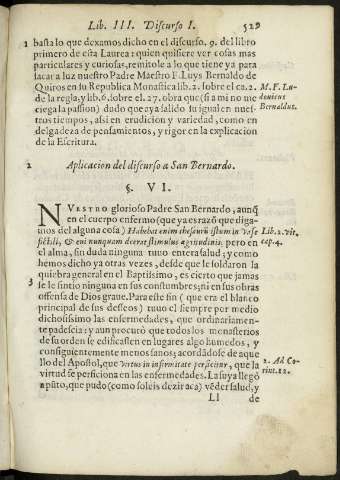 Lib. III. Discurso I. 529
1 basta lo que dexamos dicho en el discurso. 9. del libro
primero de esta Laurea: quien quisiere ver cosas mas
particulares y curiosas, remitole a lo que tiene ya para
sacar a luz nuestro Padre Maestro F. Luys Bernaldo de
Quiros en su Republica Monastica lib. 2. sobre el ca. 2. M. F. Lu-
de la regla, y lib. 6. sobre el. 27. obra que (si a mi no me douicus
ciega la passion) dudo que aya salido su igual en nues- Bernaldus.
tros tiempos, assi en erudicion y variedad, como en
delgadeza de pensamientos, y rigor en la explicacion
de la Escritura.
2 Aplicacion del discurso a San Bernardo.
§. VI.
NVESTRO glorioso Padre San Bernardo, aunq̃
en el cuerpo enfermo (que ya es razõ que diga-
mos del alguna cosa) Habebat enim thesaurũ istum in vase Lib. 2. vit.
fictili, & ei nunquam deerat stimulus ægritudinis: pero en cap. 4.
el alma, sin duda ninguna tuuo entera salud; y como
hemos dicho ya otras vezes, desde que le soldaron la
quiebra general en el Baptismo, es cierto que jamas
3 se le sintio ninguna en sus constumbres; ni en sus obras
offensa de Dios graue. Para este fin (que era el blanco
principal de sus desseos) tuuo el siempre por medio
dichosissimo las enfermedades, que ordinariamen-
te padescia: y aun procurò que todos los monasterios
de su orden se edificassen en lugares algo humedos, y
consiguientemente menos sanos; acordãdose de aque
llo del Apostol, que Virtus in infirmitate perficitur, que la 2. Ad Co-
virtud se perficiona en las enfermedades. La suya llegò rint. 12.
a pũto, que pudo (como soleis dezir acà) vẽder salud, y
Ll de